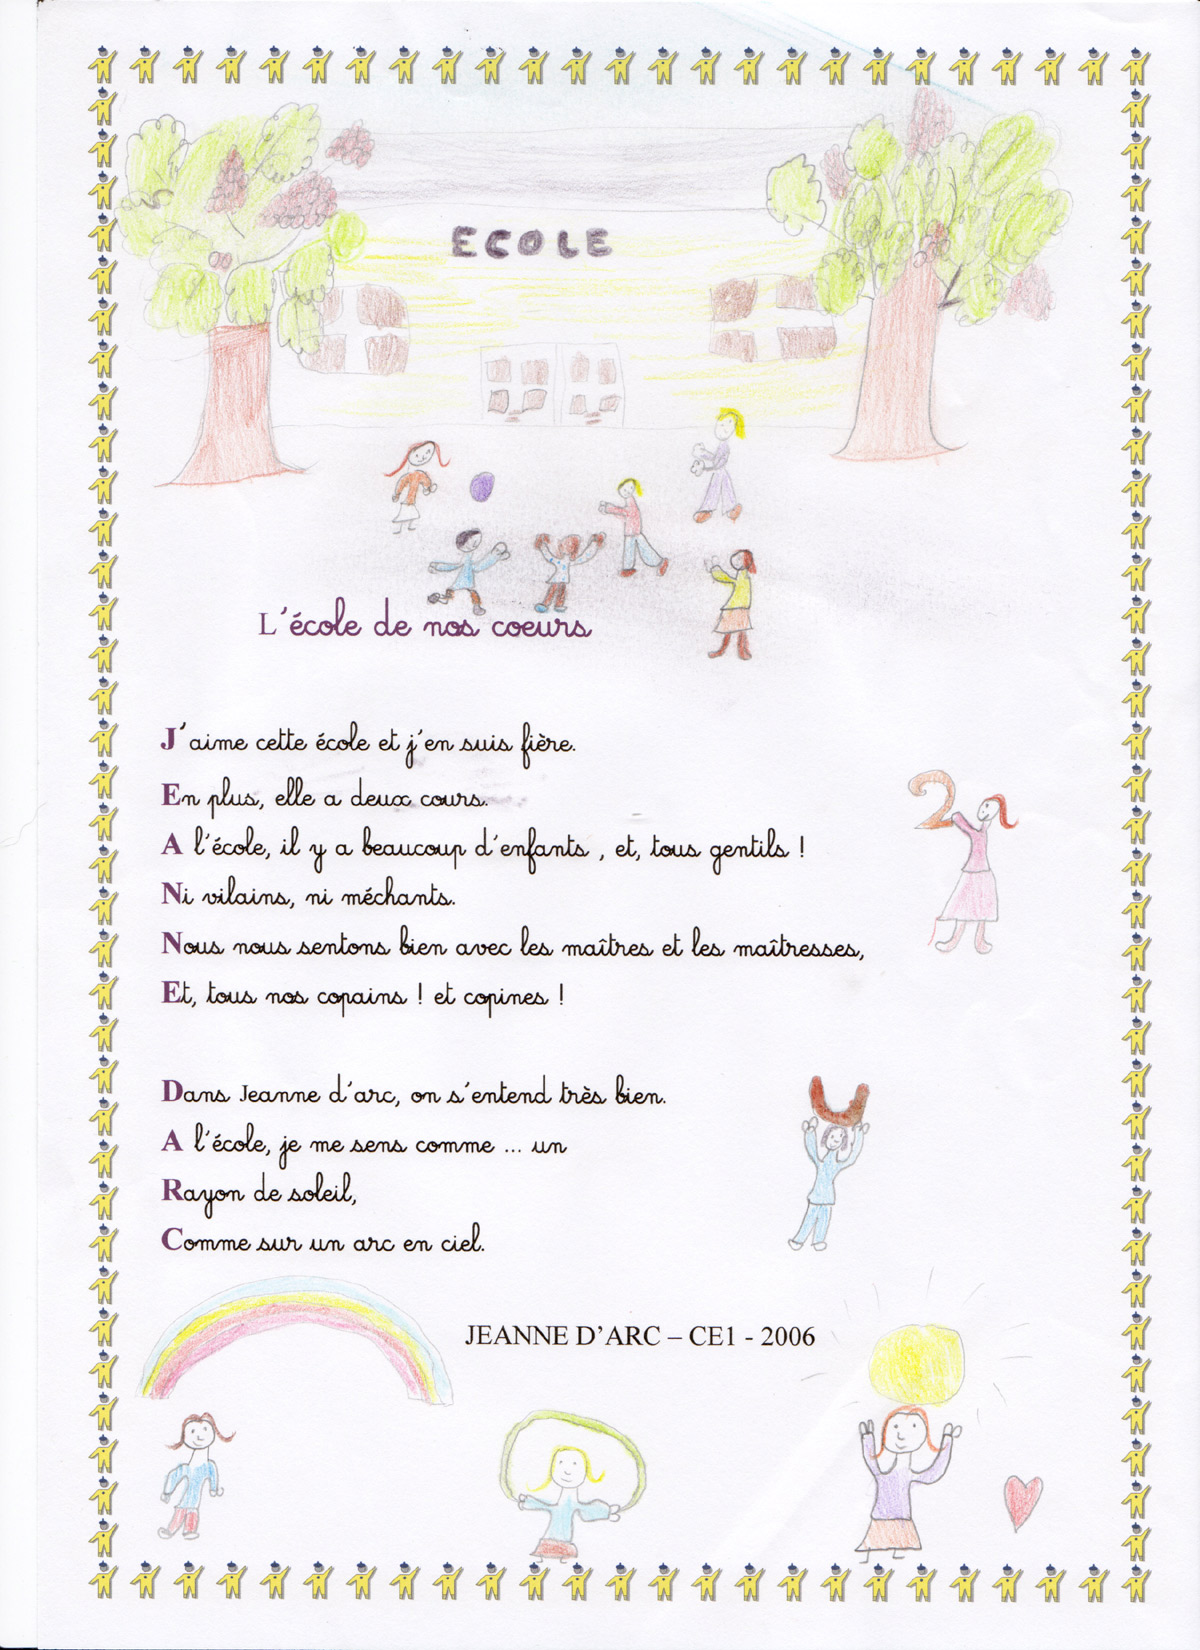 ECOLE
L'école de nos coeurs
J'aime cette école et j'en suis fière.
En plus, elle a deux cours.
A l'école, il y a beaucoup d'enfants , et, tous gentils !
2
Ni vilains, ni méchants.
Nous nous sentons bien avec les maîtres et les maîtresses,
Et, tous nos copains ! et copines !
Dans Jeanne d'arc, on s'entend très bien.
A l'école, je me sens comme ... un
Rayon de soleil,
Comme sur un arc en ciel.
JEANNE D'ARC – CE1 - 2006